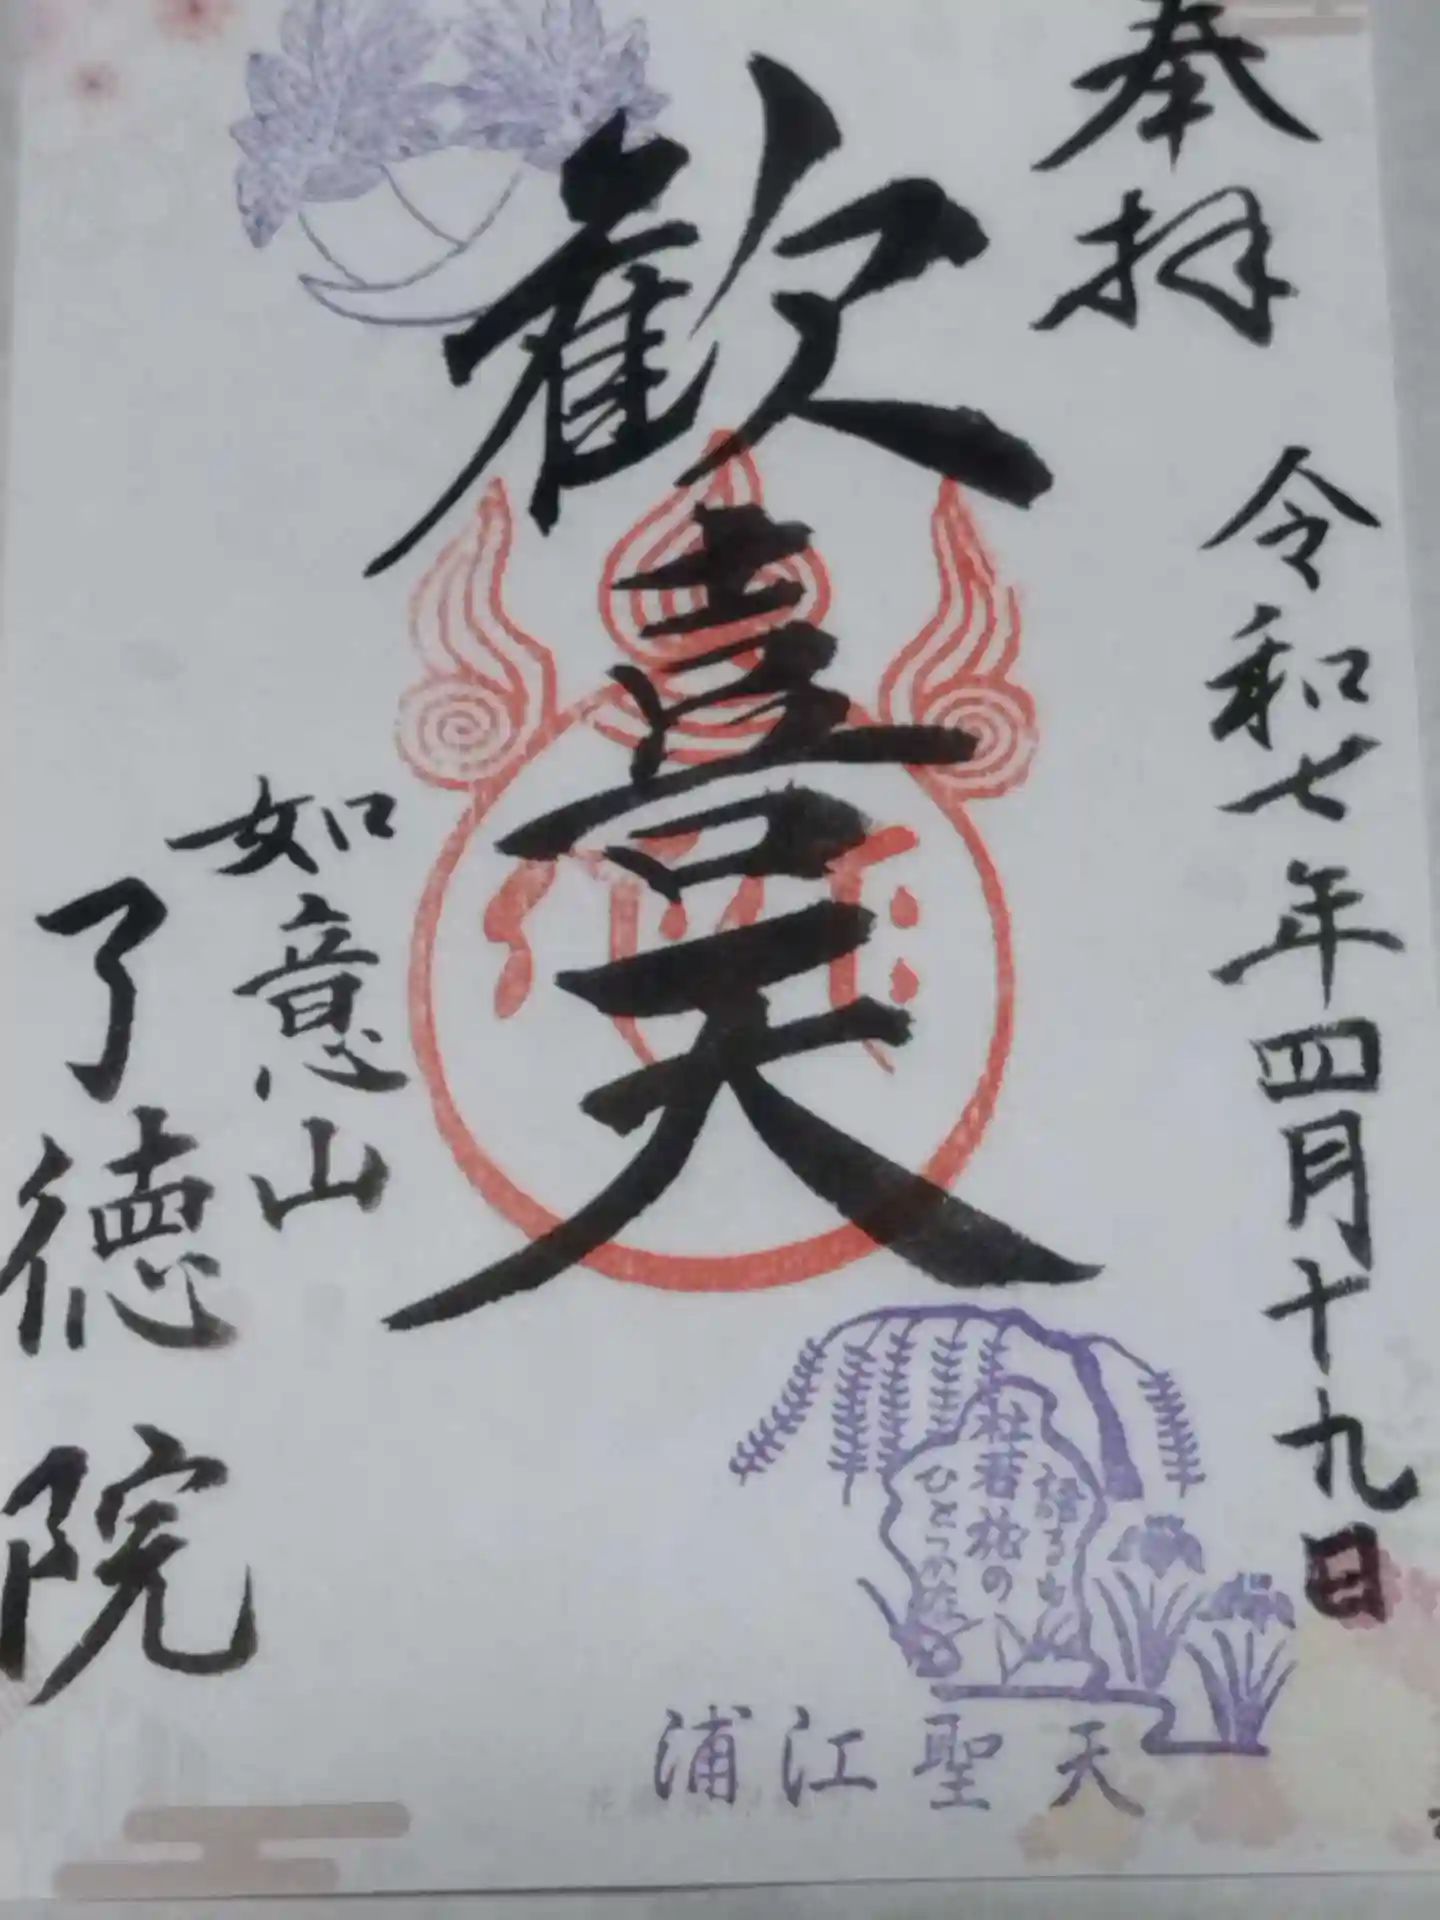 奉拝
令和七年四月十九日
歓喜天
如意山
了徳院
語るも
杜若旅の
ひとつ
浦江聖天